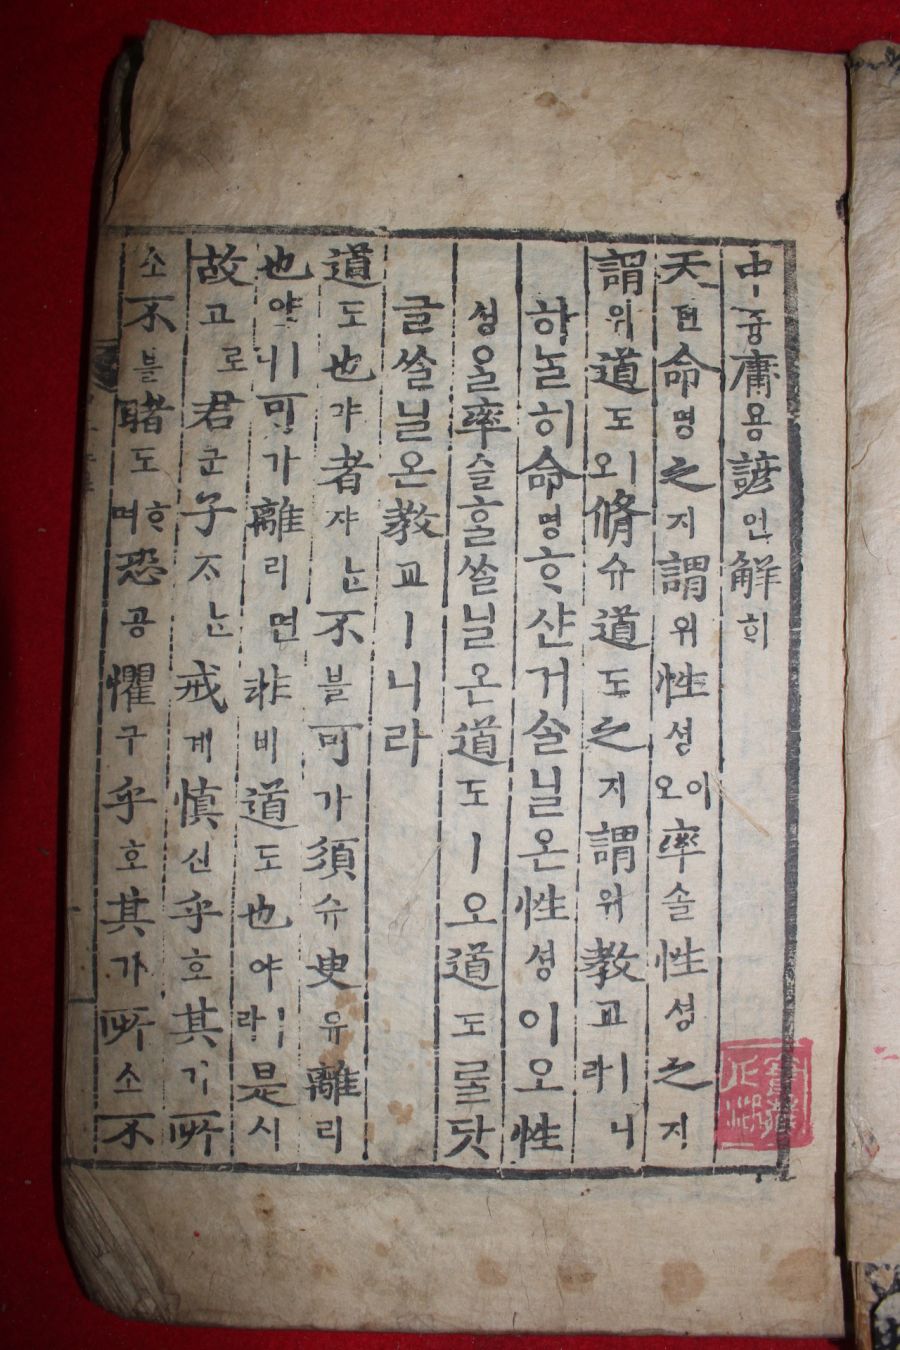 中듕庸용諺언解ᄒᆡ
天텬命명之지謂위性셩이오率솔性셩之지
謂위道도ㅣ오修슈道도之지謂위敎교ㅣ니라
하ᄂᆞᆯ히命명ᄒᆞ샨거ᄉᆞᆯ닐온性셩이오性
셩을率솔ᄒᆞᆯᄊᆞᆯ닐온道도ㅣ오道도ᄅᆞᆯ닷
글ᄊᆞᆯ닐온敎교ㅣ니라
道도也야者쟈ᄂᆞᆫ不블可가須슈臾유離리
也야ㅣ니可가離리면非비道도也야ㅣ라是시
故고로君군子ᄌᆞᄂᆞᆫ戒계愼신乎호其기所
소不블睹도ᄒᆞ며恐공懼구乎호其기所소不